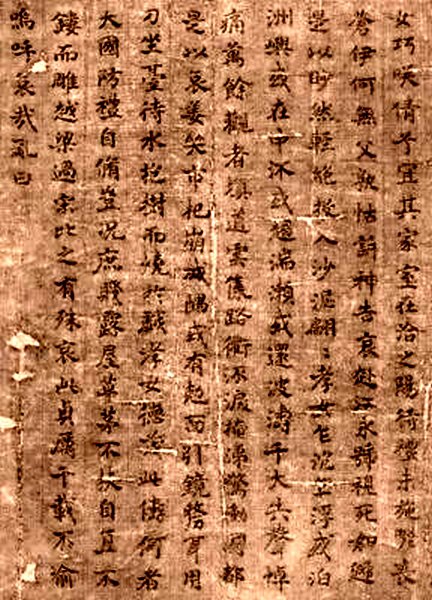 女巧咲倩兮宜其家室在洽之陽待禮未施嗟喪
蒼伊何無父孰怙訴神告哀赴江永號視死如歸
是以眇然輕絕投入沙泥翩〻孝女乍沉乍浮或泊
洲嶼或在中流或趨湍瀨或還波濤千夫失聲悼
痛萬餘觀者填道雲集路衢流淚掩涕驚慟國都
是以哀姜哭市杞崩城隅或有尅面引鏡剺耳用
刀坐臺待水抱樹而燒於戲孝女德茂此儔何者
大國防禮自脩豈況庶賤露屋草茅不扶自直不
鏤而雕越梁過宗比之有殊哀此貞厲千載不渝
嗚呼哀哉亂曰